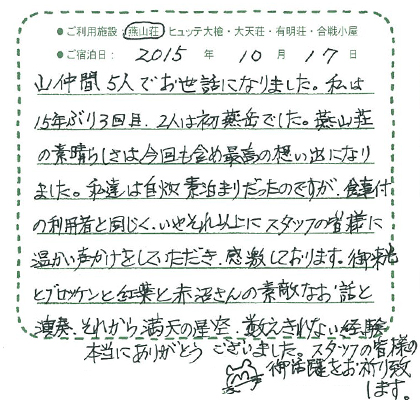 ●ご利用施設：燕山荘・ヒュッテ大槍・大天荘・有明荘・合戦小屋
●ご宿泊日： 2015 年 10 月 17 日
山仲間5人でお世話になりました。私は
15年ぶり3回目、2人は初燕岳でした。燕山荘
の素晴らしさは、今回も含め最高の想い出になり
ました。私達は自炊素泊まりだったのですが、食事付
の利用者と同じく、いやそれ以上にスタッフの皆様に
温かい声かけをしていただき、感激しております。御来光
とブロッケンと紅葉と赤沼さんの素敵なお話と
演奏、それから満天の星空、数えきれない経験
本当にありがとうございました。スタッフの皆様の
御活躍をお祈り致
します。